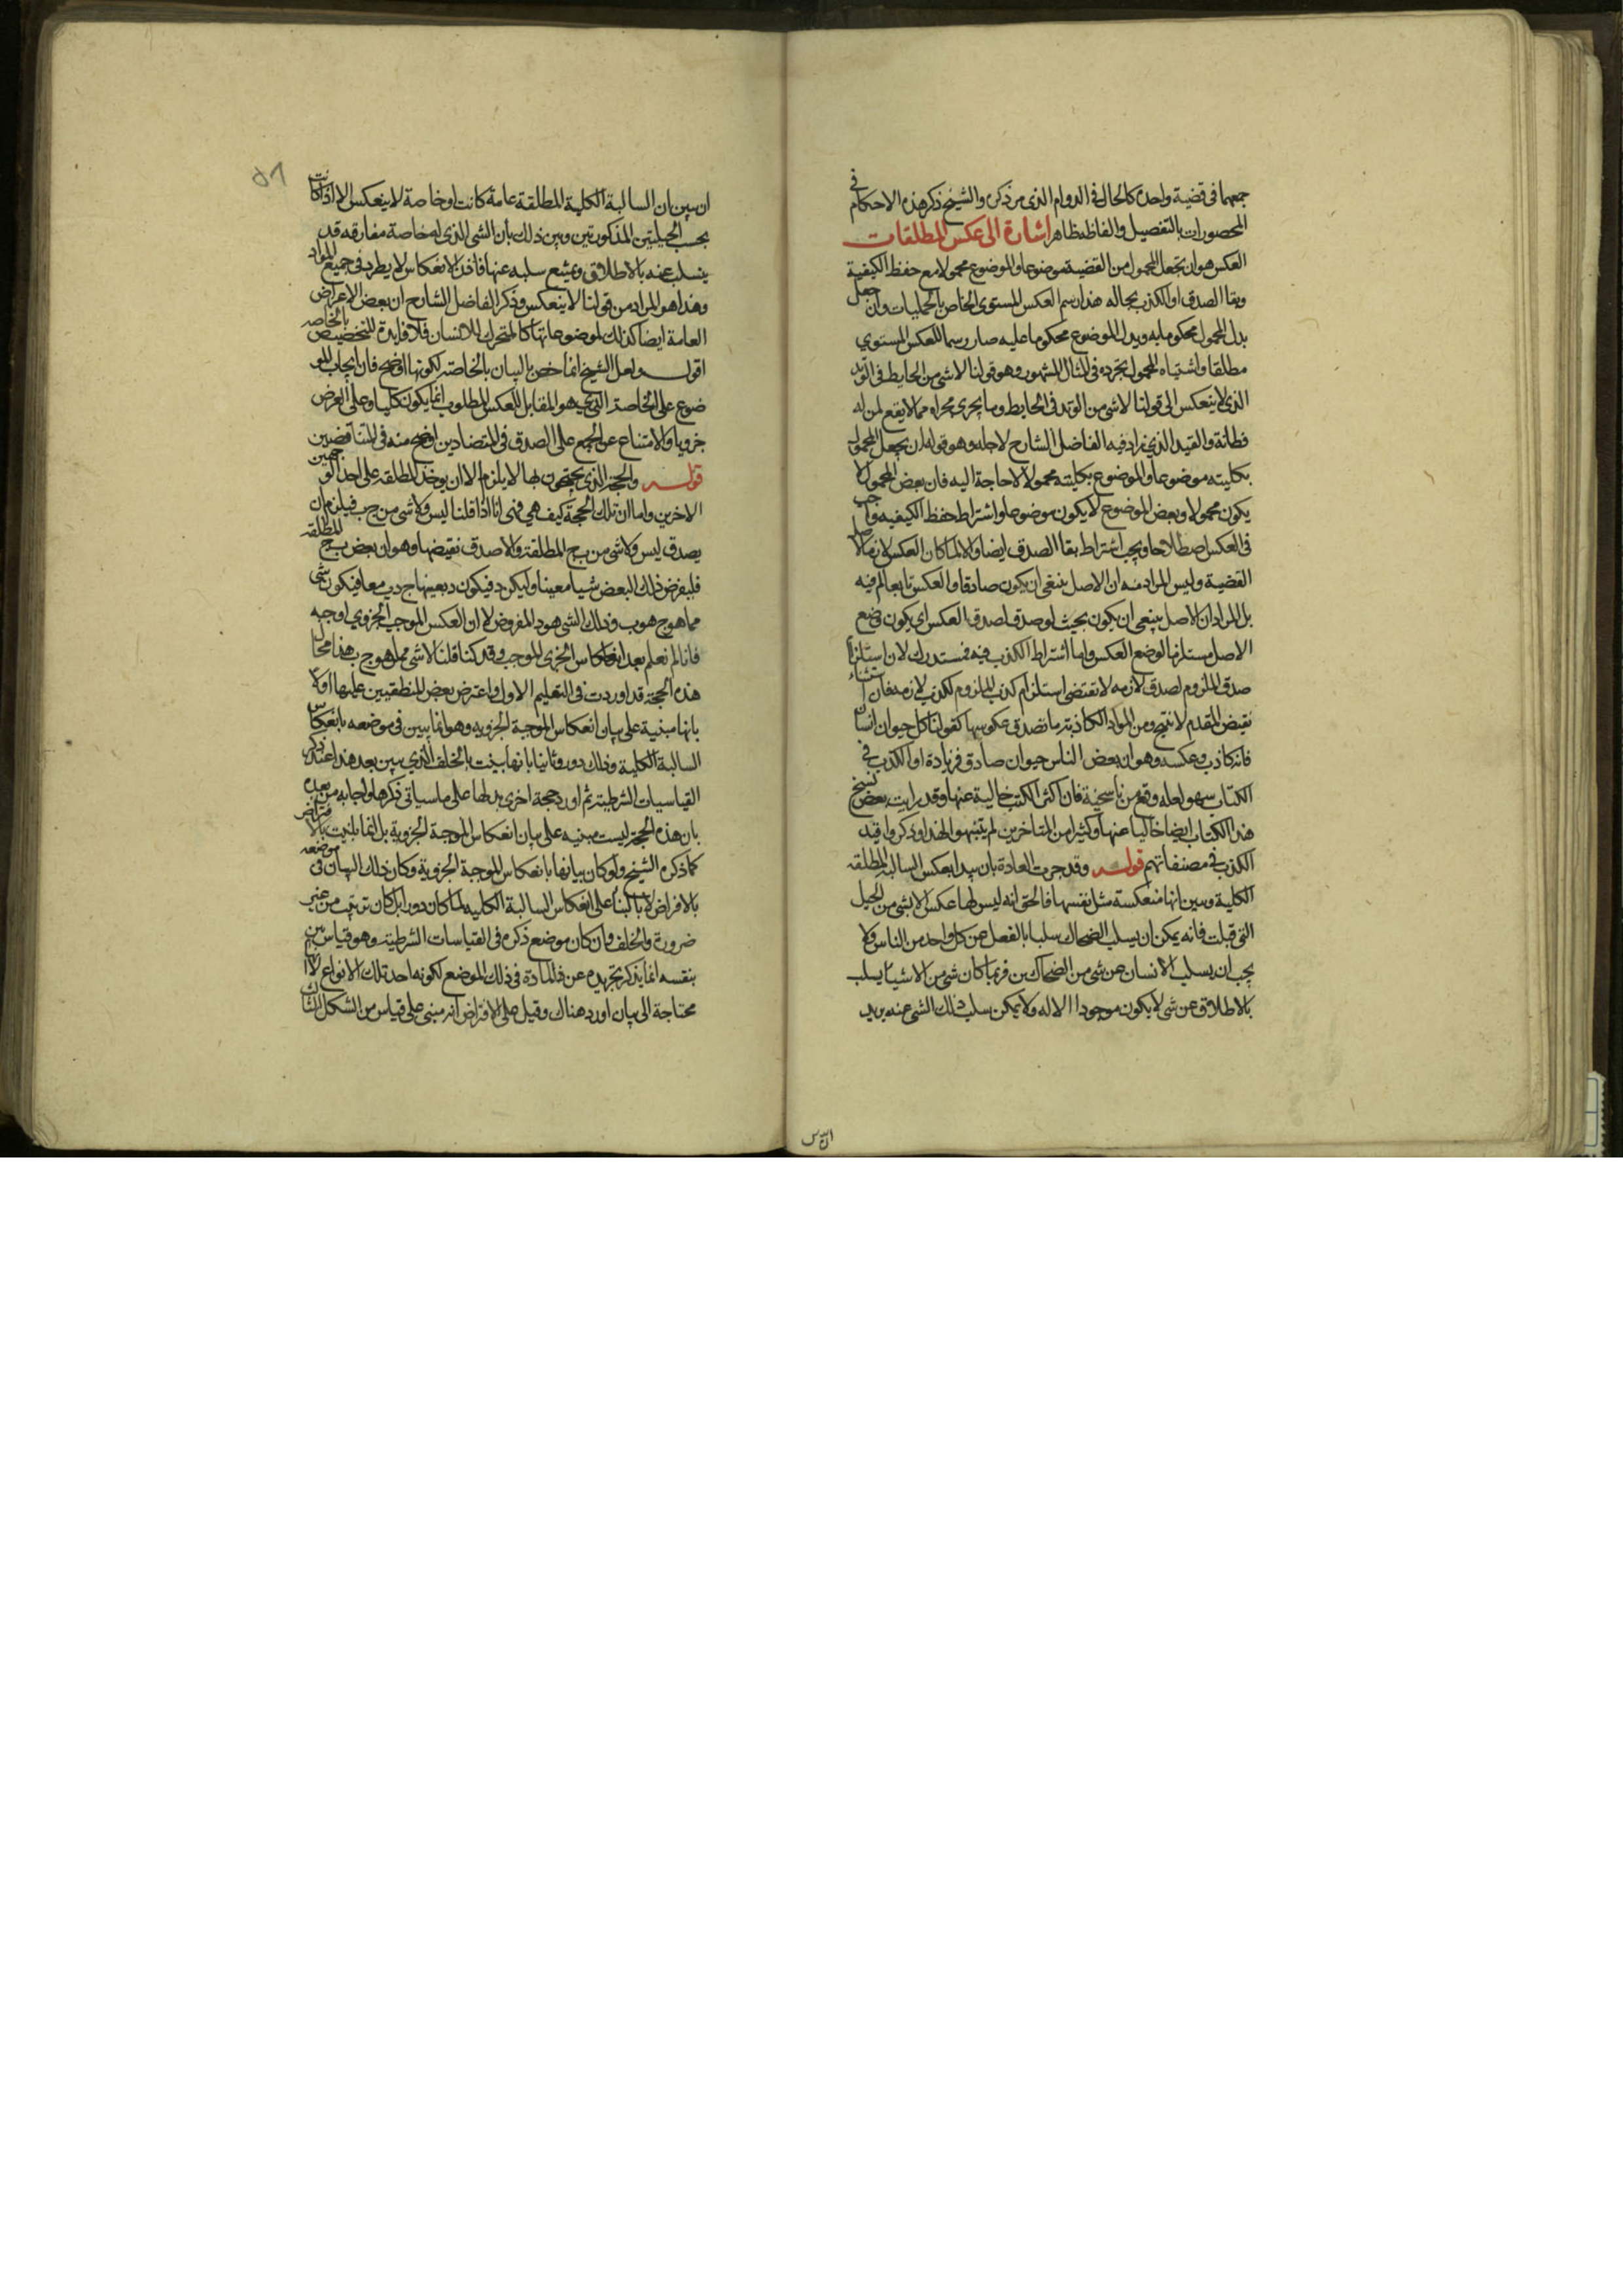 جمعهما فى قضية واحدة كالحال فى الدوام الذى مر ذكره والشيخ ذكر هذه الاحكام فى
المحصورات بالتفصيل والفاظه ظاهر اشارة الى عكس المطلقات
العكس هو ان يجعل المحمول من القضية موضوعا والموضوع محمولا مع حفظ الكيفية
وبقا الصدق او الكذب بحاله هذا رسم العكس المستوى الخاص بالحمليات وان جعل
بدل المحمول محكوما به وبدل الموضوع محكوما عليه صار رسما للعكس المستوي
مطلقا واشتباه المحمول بجزءه فى المثال المشهور وهو قولنا لاشى من الحايط فى الوتد
الذى لا ينعكس الى قولنا لاشى من الوتد فى الحايط وما يجرى مجراه مما لا يقع لمن له
فطانة والقيد الذي زاد فيه الفاضل الشارح لاجله وهو قوله ان يجعل المحمول
بكليته موضوعا والموضوع بكليته محمولا لا حاجة اليه فان بعض المحمول لا
يكون محمولا وبعض الموضوع لا يكون موضوعا واشتراط حفظ الكيفيه واجب
فى العكس اصطلاحا ويجب اشتراط بقا الصدق ايضا والا لما كان العكس لازما لاصل
القضية وليس المراد منه ان الاصل ينبغى ان يكون صادقا والعكس تابعا له فيه
بل المراد ان الاصل ينبغى ان يكون بحيث لو صدق لصدق العكس اى يكون وضع
الاصل مستلزما لوضع العكس واما اشتراط الكذب فيه فمستدرك لان استلزام
صدق الملزوم لصدق لازمه لا تقتضى استلزام كذب الملزوم لكذب لازمه فان استثناء
نقيض المقدم لا ينتج ومن المواد الكاذبة ما تصدق عكوسها كقولنا كل حيوان انسان
فانه كاذب وعكسه وهو ان بعض الناس حيوان صادق فزيادة او الكذب فى
الكتاب سهو لعله وقع من ناسخيه فان اكثر الكتب خالية عنها وقد رايت بعض نسخ
هذا الكتاب ايضا خاليا عنها وكثيرا من المتاخرين لم يتنبهوا لهذا وذكروا قيد
الكذب فى مصنفاتهم قوله وقد جرت العادة بان يبدا بعكس السالبة المطلقه
الكلية ويبين انها منعكسة مثل نفسها فالحق انه ليس لها عكس الا بشى من الحيل
التى قيلت فانه يمكن ان يسلب الضحاك سلبا بالفعل عن كل واحد من الناس ولا
يجب ان يسلب الانسان عن شى من الضحاكين فربما كان شى من الاشيا يسلب
بالاطلاق عن شى لا يكون موجودا الا له ولا يمكن سلب ذلك الشى عنه يريد
ان يبين ان السالبة الكلية المطلقة عامة كانت او خاصة لا ينعكس الا اذا كانت
بحسب الحيلتين المذكورتين وبين ذلك بأن الشى الذى له خاصة مفارقه قد
ينسلب عنه بالاطلاق ويمتنع سلبه عنها فاذن الانعكاس لا يطرد فى جميع المواد
وهذا هو المراد من قولنا لا ينعكس وذكر الفاضل الشارح ان بعض الاعراض
العامة ايضا كذلك لموضوعاتها كالمتحرك للانسان فلا فايدة للتخصيص بالخاصه
اقول ولعل الشيخ انما خص بالبيان بالخاصة لكونها اوضح فان ايجاب المو
ضوع على الخاصة الذي هو المقابل للعكس المطلوب انما يكون كليا وعلى العرض
جزويا والامتناع عن الجمع على الصدق فى المتضادين اوضح منه فى المتناقضين
قوله والحجة الذى يحتجون بها لا يلزم الا ان يوخذ المطلقه على احد الوجهين
الاخرين واما ان تلك الحجة كيف هي فهى انا اذا قلنا ليس ولا شى من ج ب فيلزم ان
يصدق ليس ولا شى من ب ج المطلقة والا صدق نقيضها وهو ان بعض ب ج المطلقه
فليفرض ذلك البعض شيا معينا وليكن د فيكون د بعينها ج و ب معا فيكون شى
مما هو ج هو ب وذلك الشى هو د المفروض لا ان العكس الموجب الجزوي اوجبه
فانا لم نعلم بعد انعكاس الجزى الموجب وقد كنا قلنا لا شى مما هو ج ب هذا محال
هذه الحجة قد اوردت فى التعليم الاول واعترض بعض المنطقيين عليها اولا
بانها مبنية على بيان انعكاس الموجبة الجزويه وهو انما يبين فى موضعه بانعكاس
السالبة الكلية وذلك دور وثانيا بانها بينت بالخلف الذي يبين بعد هذا عند ذكر
القياسيات الشرطية ثم اورد حجة اخرى بدلها على ما سياتى ذكرها واجابه من بعده
بان هذه الحجة ليست مبنيه على بيان انعكاس الموجبة الجزوية بل انما بينت بالافتراض
كما ذكره الشيخ ولو كان بيانها بانعكاس الموجبة الجزوية وكان ذلك البيان فى موضعه
بالافراض لا بالبناء على انعكاس السالبة الكليه لما كان دورا بل كان ترتيب من غير
ضرورة والخلف وان كان موضع ذكره فى القياسات الشرطية وهو قياس بين
بنفسه انما يذكر تجريده عن المادة فى ذلك الموضع لكونه احد تلك الانواع لا لانه
محتاجة الى بيان اورد هناك وقيل على الافتراض انه مبنى على قياس من الشكل الثالث